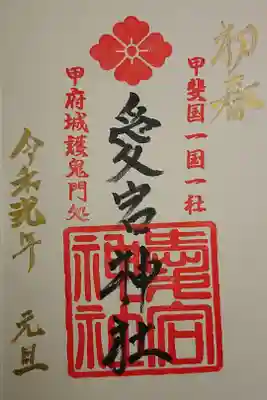 初春
甲斐国一国一社
愛宕神社
愛宕
神社
甲府城護鬼門処
令和弐年 元旦